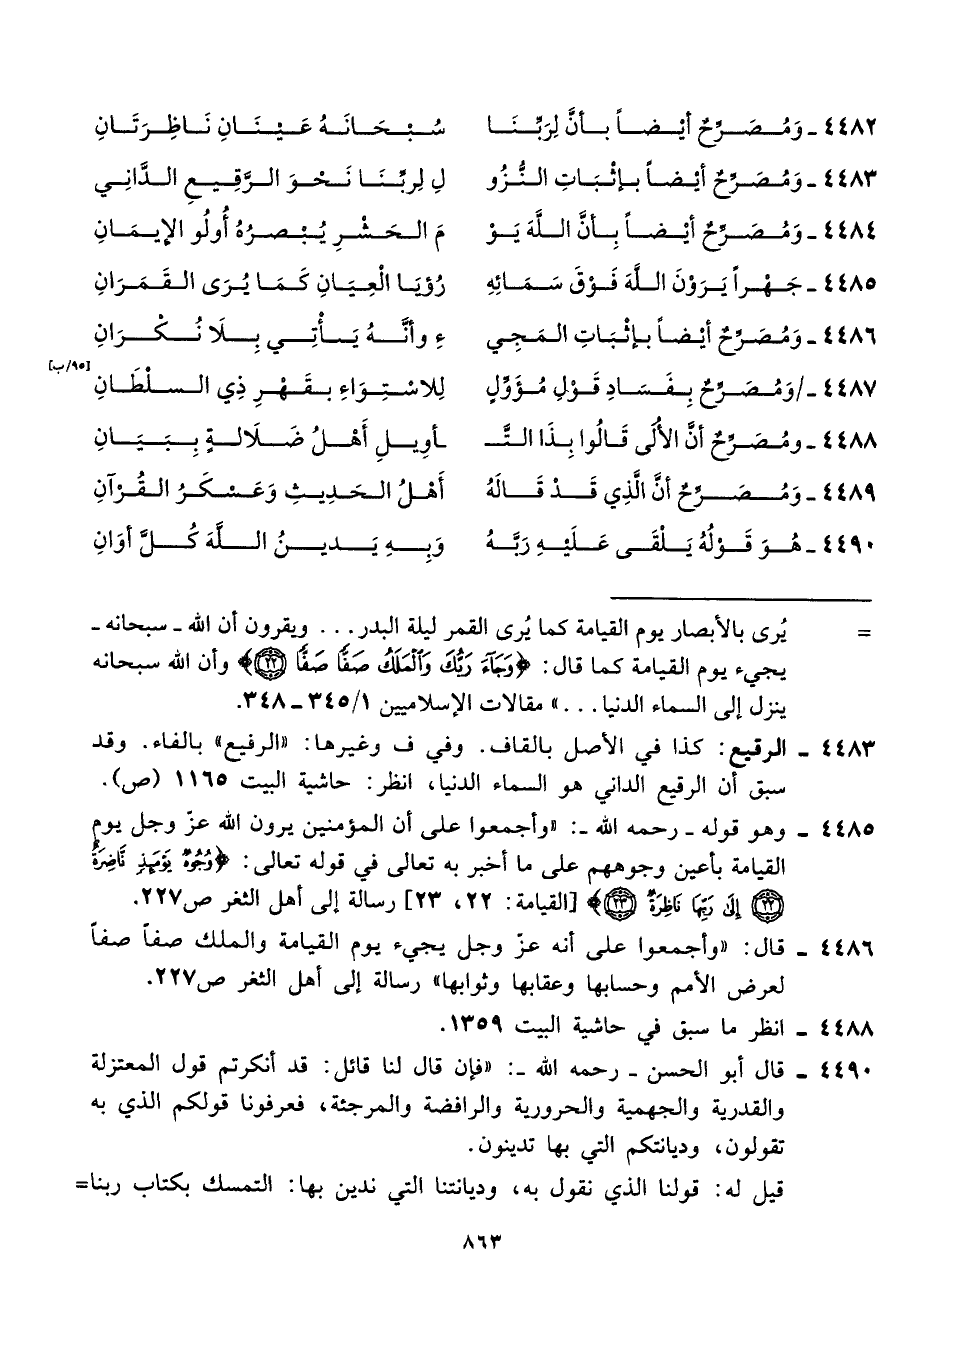 ٤٤٨٢ ـ وَمُصَرِّحٌ أيْضاً بأنَّ لِرَبِّنَا سُبْحَانَهُ عَيْنَانِ نَاظِرَتَانِ
٤٤٨٣ ـ وَمُصَرِّحٌ أيْضاً بإثْبَاتِ النُّزُو لِ لِربِّنَا نَحْوَ الرَّقيعِ الدَّانِي
٤٤٨٤ ـ وَمُصَرِّحٌ أيْضاً بِأنَّ اللَّهَ يَوْ مَ الحَشْرِ يُبْصرُهُ أُولُو الإيمَانِ
٤٤٨٥ ـ جَهْراً يَرَوْنَ اللَّهَ فَوْقَ سَمَائِهِ رُؤيَا الْعِيَانِ كَمَا يُرَى القَمَرَانِ
٤٤٨٦ ـ وَمُصَرِّحٌ أيْضاً بإثْبَاتِ المَجِي ءِ وأنَّهُ يَأْتِي بِلَا نُكْرَانِ
[٩٥/ب]
٤٤٨٧ ـ /وَمُصَرِّحٌ بِفَسَادِ قَوْلِ مُؤَوِّلٍ لِلاسْتِوَاءِ بقَهْرِ ذِي السلْطَانِ
٤٤٨٨ ـ ومُصَرِّحٌ أنَّ الأُلَى قَالُوا بِذَا التَّـ ـأويلِ أَهْلُ ضَلَالةٍ بِبَيَانِ
٤٤٨٩ ـ وَمُصَرِّحٌ أنَّ الَّذِي قَدْ قَالَهُ أَهْلُ الحَدِيثِ وَعَسْكَرُ القُرْآنِ
٤٤٩٠ ـ هُوَ قَوْلُهُ يَلْقَى عَلَيْهِ رَبَّهُ وَبِهِ يَدينُ اللَّهَ كُلَّ أوَانِ
= يُرى بالأبصار يوم القيامة كما يُرى القمر ليلة البدر... ويقرون أن الله ـ سبحانه ـ
يجيء يوم القيامة كما قال: ﴿وَجَآءَ رَبُّكَ وَٱلْمَلَكُ صَفًّا صَفًّا ۝٢٢﴾ وأن الله سبحانه
ينزل إلى السماء الدنيا...» مقالات الإسلاميين ١/ ٣٤٥ ـ ٣٤٨.
٤٤٨٣ ـ الرقيع: كذا في الأصل بالقاف. وفي ف وغيرها: «الرفيع» بالفاء. وقد
سبق أن الرقيع الداني هو السماء الدنيا، انظر: حاشية البيت ١١٦٥ (ص).
٤٤٨٥ ـ وهو قوله ـ رحمه الله ـ: «وأجمعوا على أن المؤمنين يرون الله عزّ وجل يوم
القيامة بأعين وجوههم على ما أخبر به تعالى في قوله تعالى: ﴿وُجُوهٌ يَوْمَئِذٍ نَّاضِرَةٌ
۝٢٢ إِلَىٰ رَبِّهَا نَاظِرَةٌ ۝٢٣﴾ [القيامة: ٢٢، ٢٣] رسالة إلى أهل الثغر ص٢٢٧.
٤٤٨٦ ـ قال: «وأجمعوا على أنه عزّ وجل يجيء يوم القيامة والملك صفاً صفاً
لعرض الأمم وحسابها وعقابها وثوابها» رسالة إلى أهل الثغر ص٢٢٧.
٤٤٨٨ ـ انظر ما سبق في حاشية البيت ١٣٥٩.
٤٤٩٠ ـ قال أبو الحسن ـ رحمه الله ـ: «فإن قال لنا قائل: قد أنكرتم قول المعتزلة
والقدرية والجهمية والحرورية والرافضة والمرجئة، فعرفونا قولكم الذي به
تقولون، وديانتكم التي بها تدينون.
قيل له: قولنا الذي نقول به، وديانتنا التي ندين بها: التمسك بكتاب ربنا=
٨٦٣